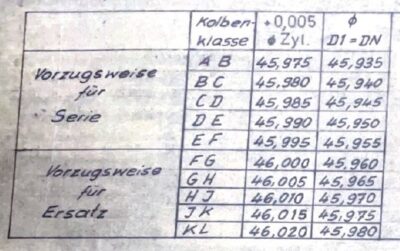 Kolben- +0,005 ϕ
klasse ϕ Zyl. D1 = DN
Vorzugsweise
für
Serie
A B 45,975 45,935
B C 45,980 45,940
C D 45,985 45,945
D E 45,990 45,950
E F 45,995 45,955
Vorzugsweise
für
Ersatz
F G 46,000 45,960
G H 46,005 45,965
H J 46,010 45,970
J K 46,015 45,975
K L 46,020 45,980